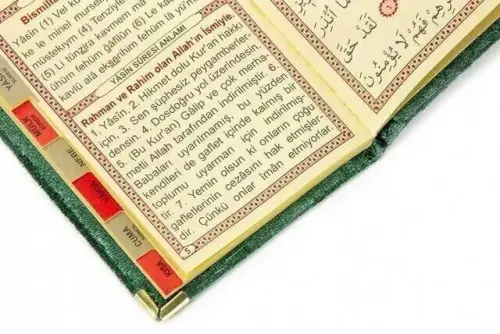 Bismillâ
Yâsîn (1) Vel ku
ke le minel mursel
müstekym (4) Tenzîyle
(5) Li tünzira kavmem mâ
ühüm fehüm gâfilûn (6) Le ka
kavlü alâ ekserihim fehüm lâ yü'm
YÂSİN SURESİ ANLAMI
Rahman ve Rahim olan Allah'ın ismiyle.
1. Yâsîn 2. Hikmet dolu Kur'an hakkı
için 3. Sen şüphesiz peygamberler-
densin 4. Dosdoğru yol üzerindesin
5. (Bu Kur'an) Gâlip ve çok merha-
metli Allah tarafından indirilmiştir. 6
Babaları uyarılmamış, bu yüzden
kendileri de gaflet içinde kalmış bir
toplumu uyarman için indirilmiş-
tir. 7. Yemin olsun ki onların çoğu
gafletlerinin cezasını hak etmişler-
dir. Çünkü onlar îmân etmiyorlar.
5
لَقَدْ حَقَّ
فَهُمْ لَا يُؤْمِنُونَ
YÂSİN
MÜLK
NEBE
CUMA
KISA